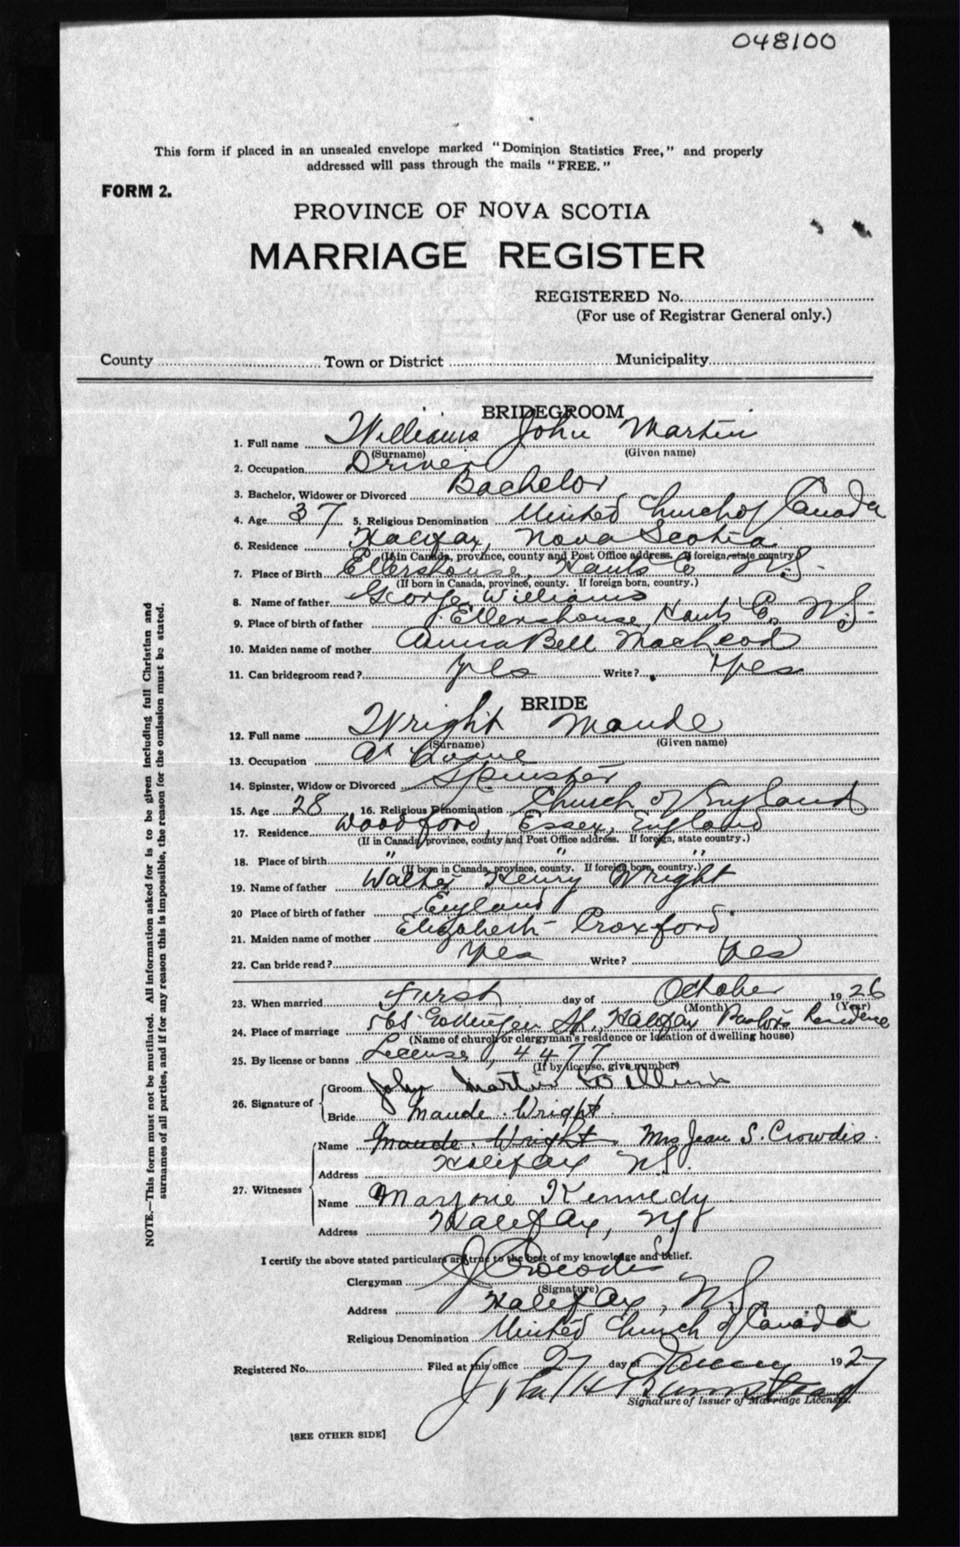 048100
This form if placed in an unsealed envelope marked "Dominion Statistics Free," and properly
addressed will pass through the mails "FREE."
FORM 2.
PROVINCE OF NOVA SCOTIA
MARRIAGE REGISTER
REGISTERED No.
(For use of Registrar General only.)
County Town or District Municipality
BRIDEGROOM
1. Full name Williams John Martin
(Surname) (Given name)
2. Occupation Driver
3. Bachelor, Widower or Divorced Bachelor
4. Age 37 5. Religious Denomination United Church of Canada
6. Residence Halifax, Nova Scotia
(If in Canada, province, county and Post Office address. If foreign, state country.)
7. Place of Birth Ellershouse, Hants Co N.S.
(If born in Canada, province, county. If foreign born, country.)
8. Name of father George Williams
9. Place of birth of father Ellershouse, Hants Co. N.S.
10. Maiden name of mother Anna Bell MacLeod
11. Can bridegroom read? Yes Write? Yes
BRIDE
12. Full name Wright Maude
(Surname) (Given name)
13. Occupation At home
14. Spinster, Widow or Divorced Spinster
15. Age 28 16. Religious Denomination Church of England
17. Residence Woodford, Essex, England
(If in Canada, province, county and Post Office address. If foreign, state country.)
18. Place of birth " " "
(If born in Canada, province, county. If foreign born, country.)
19. Name of father Walter Henry Wright
20 Place of birth of father England
21. Maiden name of mother Elizabeth Croxford
22. Can bride read? Yes Write? Yes
23. When married First day of October 1926
(Month) (Year)
24. Place of marriage St., Halifax Pastor's Residence
(Name of church or clergyman's residence or location of dwelling house)
25. By license or banns License, 4477
(If by license, give number)
26. Signature of Groom John Martin Williams
Bride Maude Wright.
27. Witnesses Name Maude Wright. Mrs Jean S. Crowdis.
Address Halifax N.S.
Name Marjorie Kennedy
Address Halifax, N.S.
I certify the above stated particulars are true to the best of my knowledge and belief.
Clergyman Crowdis
(Signature)
Address Halifax, N.S.
Religious Denomination United Church of Canada
Registered No. Filed at this office 27 day of January 1927
Signature of Issuer of Marriage Licenses.
[SEE OTHER SIDE]
NOTE.—This form must not be mutilated. All information asked for is to be given including full Christian and
surnames of all parties, and if for any reason this is impossible, the reason for the omission must be stated.